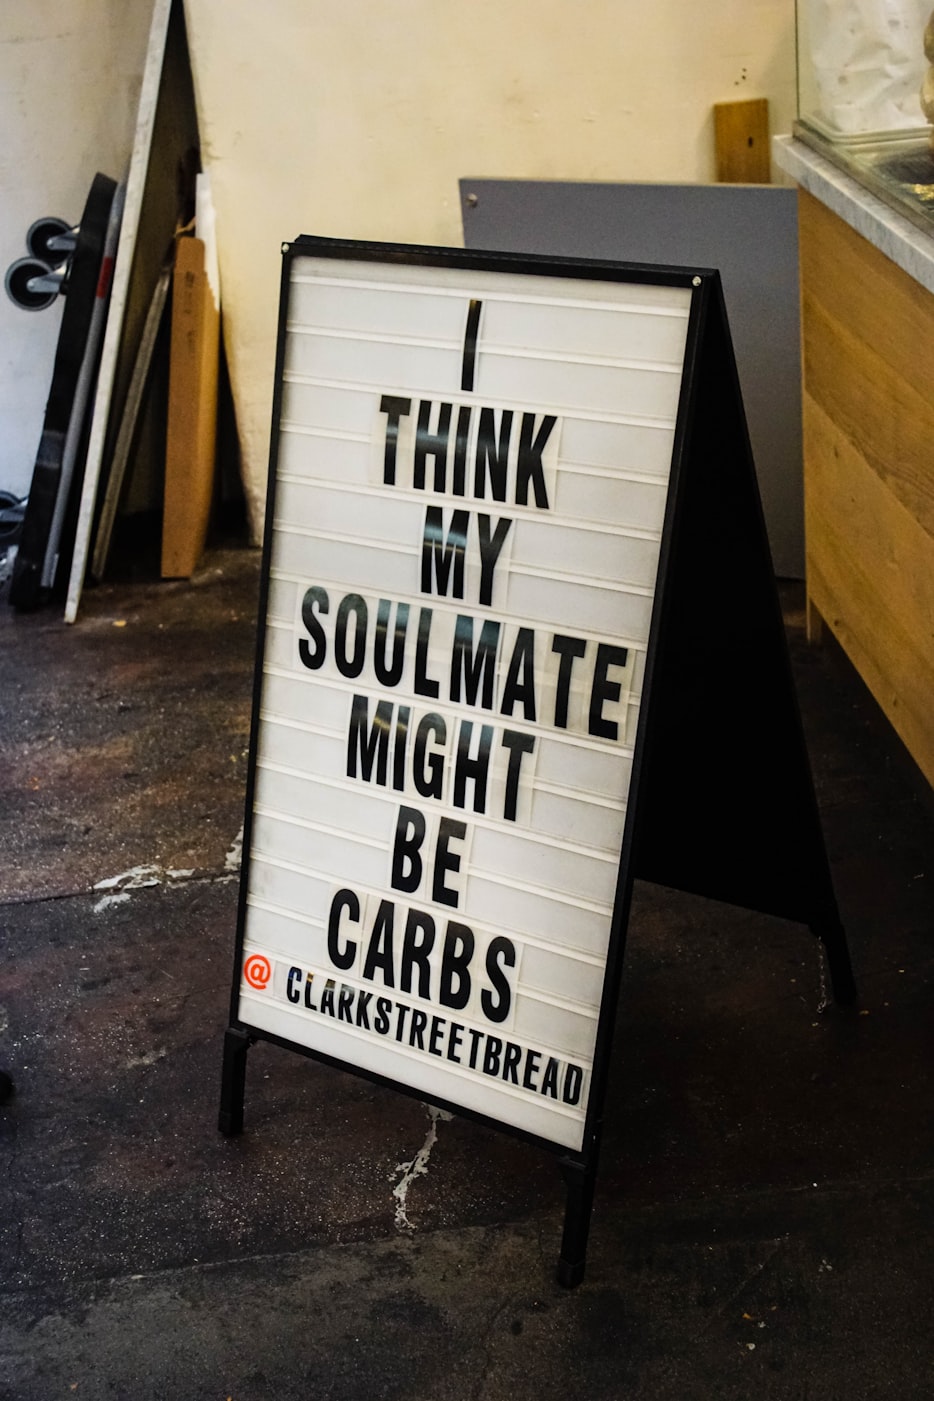 I
THINK
MY
SOULMATE
MIGHT
BE
CARBS
@CLARKSTREETBREAD